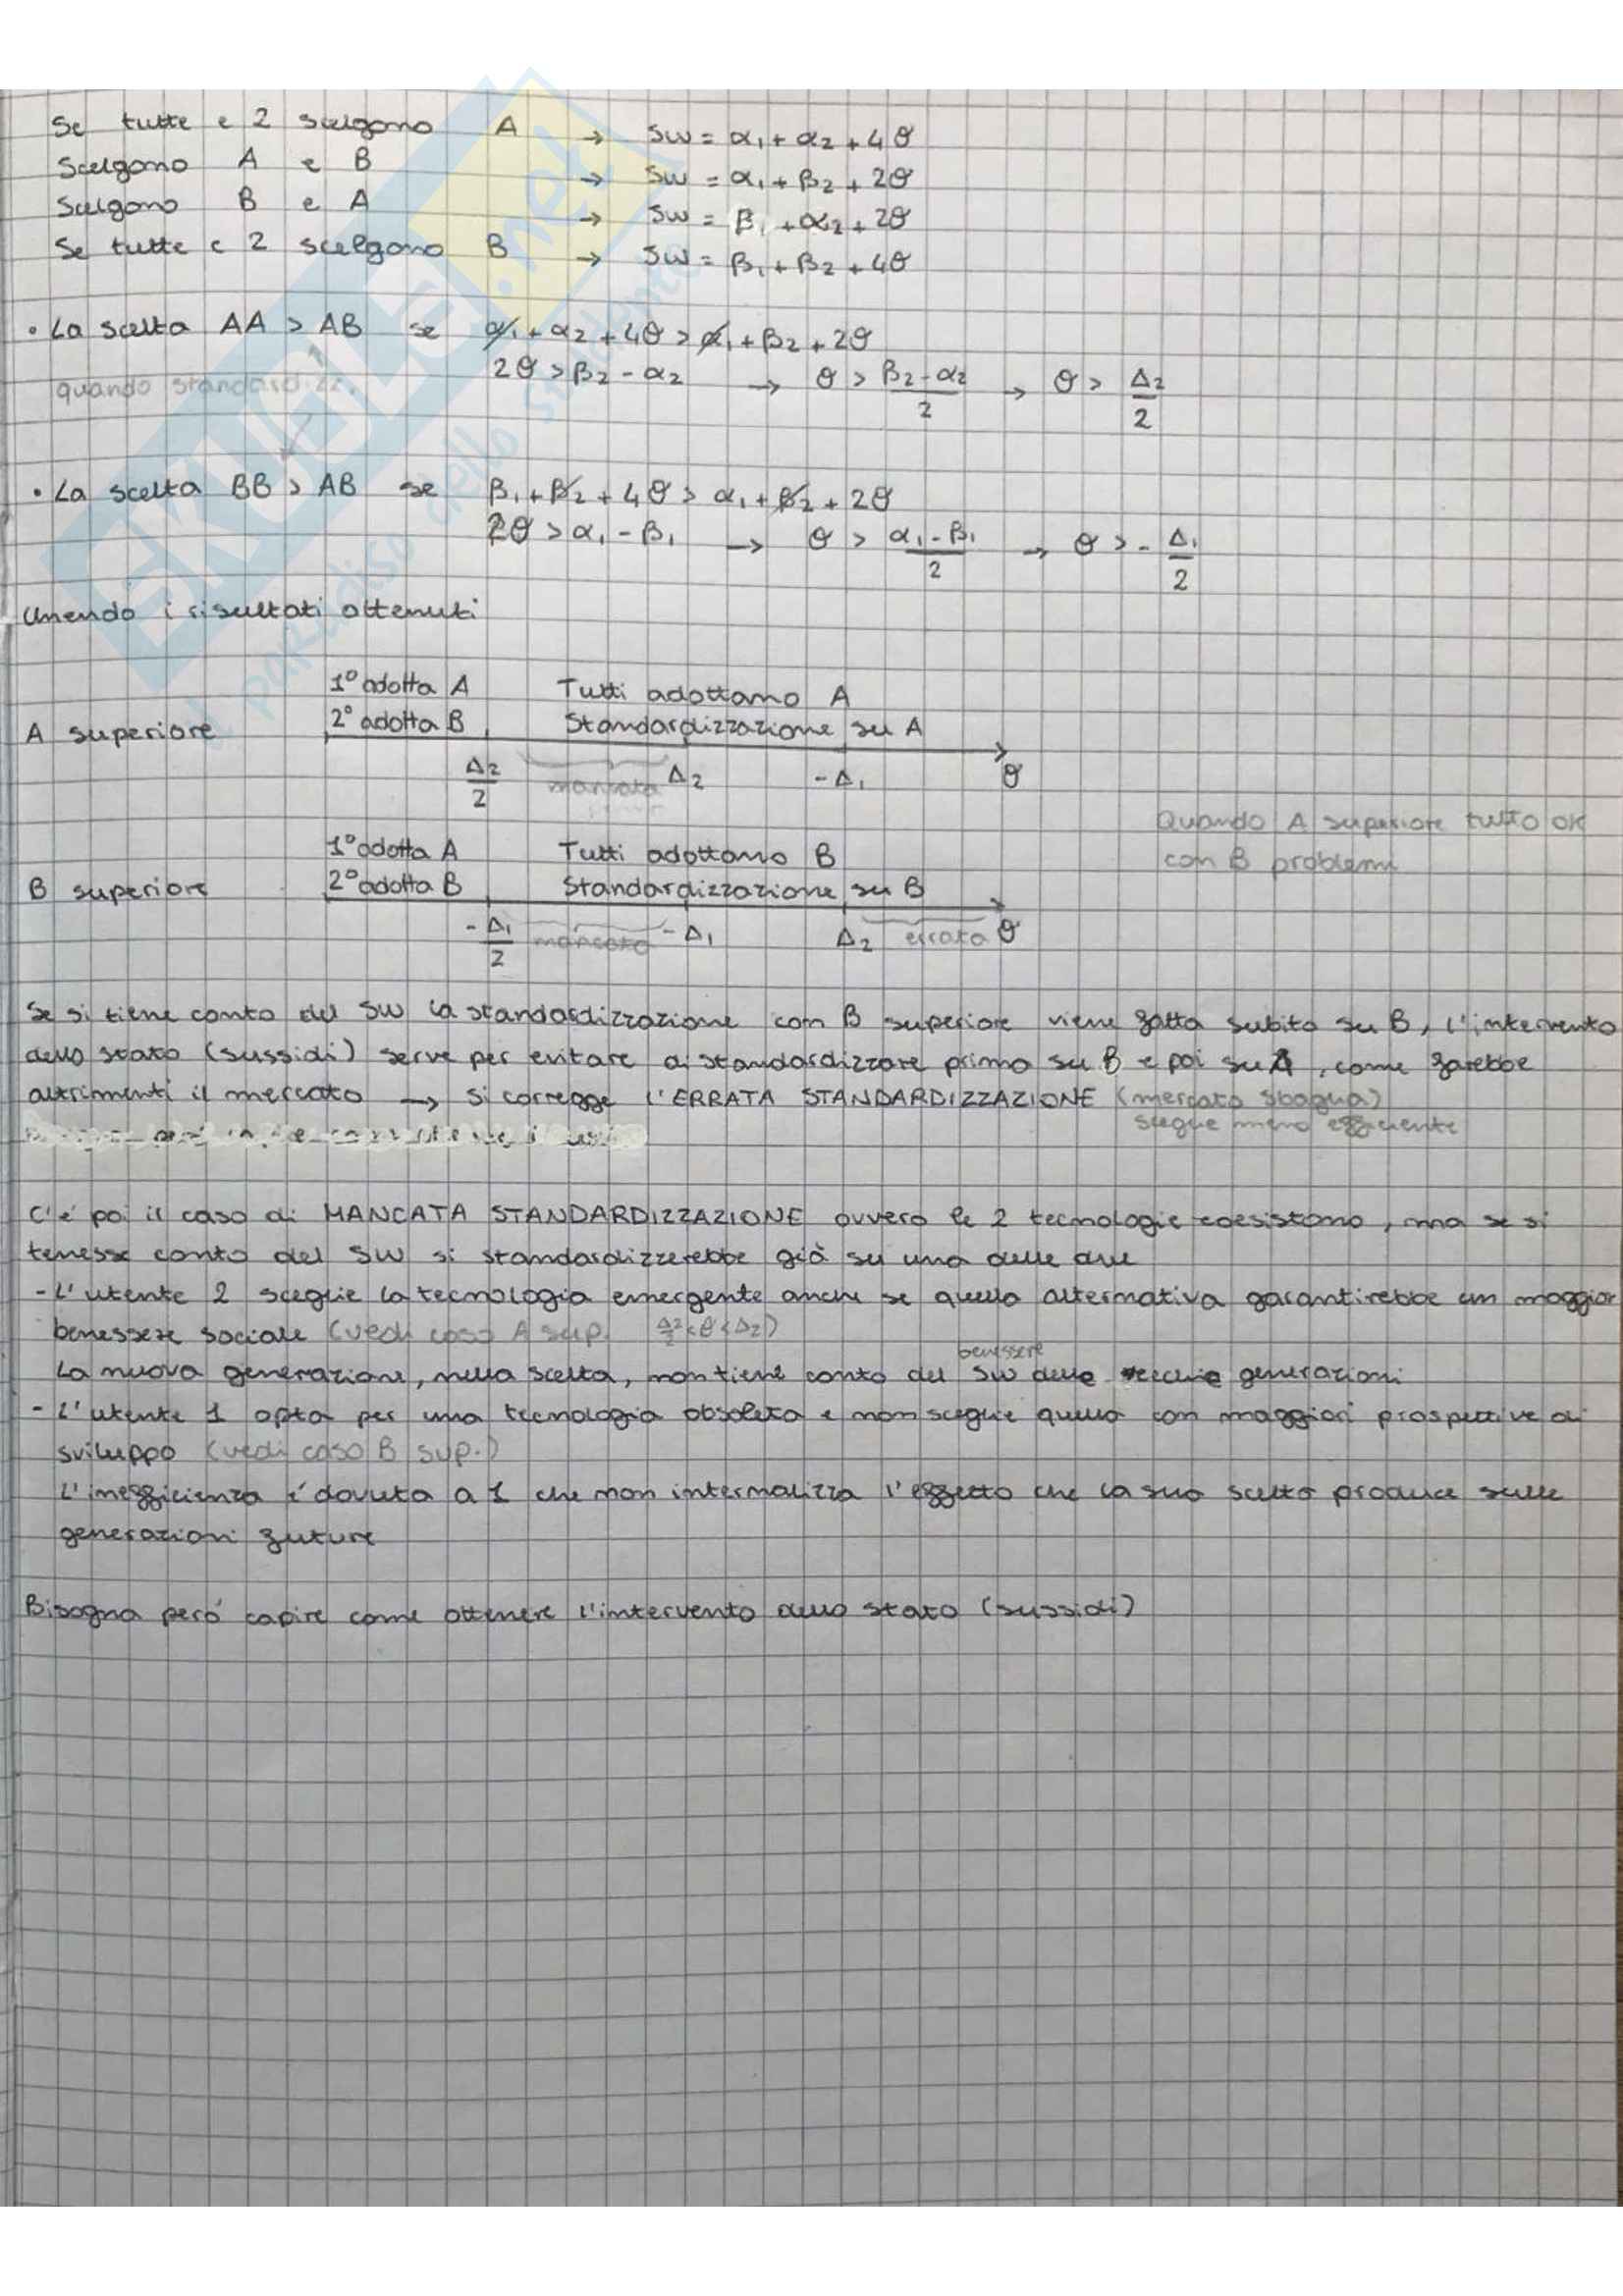 Se tutte e 2 scelgono A → SW = α₁ + α₂ + 4θ
Scelgono A e B → SW = α₁ + β₂ + 2θ
Scelgono B e A → SW = β₁ + α₂ + 2θ
Se tutte e 2 scelgono B → SW = β₁ + β₂ + 4θ
• La scelta AA > AB se α₁ + α₂ + 4θ > α₁ + β₂ + 2θ
quando standardizz.
2θ > β₂ - α₂ → θ > (β₂ - α₂)/2 → θ > Δ₂/2
• La scelta BB > AB se β₁ + β₂ + 4θ > α₁ + β₂ + 2θ
2θ > α₁ - β₁ → θ > (α₁ - β₁)/2 → θ > - Δ₁/2
Unendo i risultati ottenuti
1° adotta A Tutti adottano A
A superiore 2° adotta B Standardizzazione su A
Δ₂/2 mancata Δ₂ - Δ₁ θ
Quando A superiore tutto ok
con B problemi
1° adotta A Tutti adottano B
B superiore 2° adotta B Standardizzazione su B
- Δ₁/2 mancata - Δ₁ Δ₂ errata θ
Se si tiene conto del SW la standardizzazione con B superiore viene fatta subito su B, l'intervento
dello stato (sussidi) serve per evitare di standardizzare primo su B e poi su A, come farebbe
altrimenti il mercato → si corregge l'ERRATA STANDARDIZZAZIONE (mercato sbaglia)
sceglie meno efficiente
C'é poi il caso di MANCATA STANDARDIZZAZIONE ovvero le 2 tecnologie coesistono, ma se si
tenesse conto del SW si standardizzerebbe già su una delle due
- L'utente 2 sceglie la tecnologia emergente anche se quella alternativa garantirebbe un maggior
benessere sociale (vedi caso A sup. Δ₂/2 < θ < Δ₂)
benessere
La nuova generazione, nella scelta, non tiene conto del SW delle vecchie generazioni
- L'utente 1 opta per una tecnologia obsoleta e non sceglie quella con maggiori prospettive di
sviluppo (vedi caso B sup.)
L'inefficienza é dovuta a 1 che non internalizza l'effetto che la sua scelta produce sulle
generazioni future
Bisogna peró capire come ottenere l'intervento dello stato (sussidi)